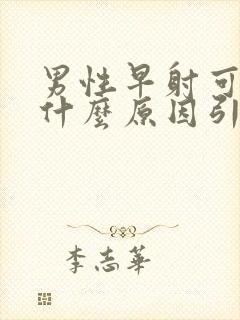 男性早射可
什麼原因引
李志華